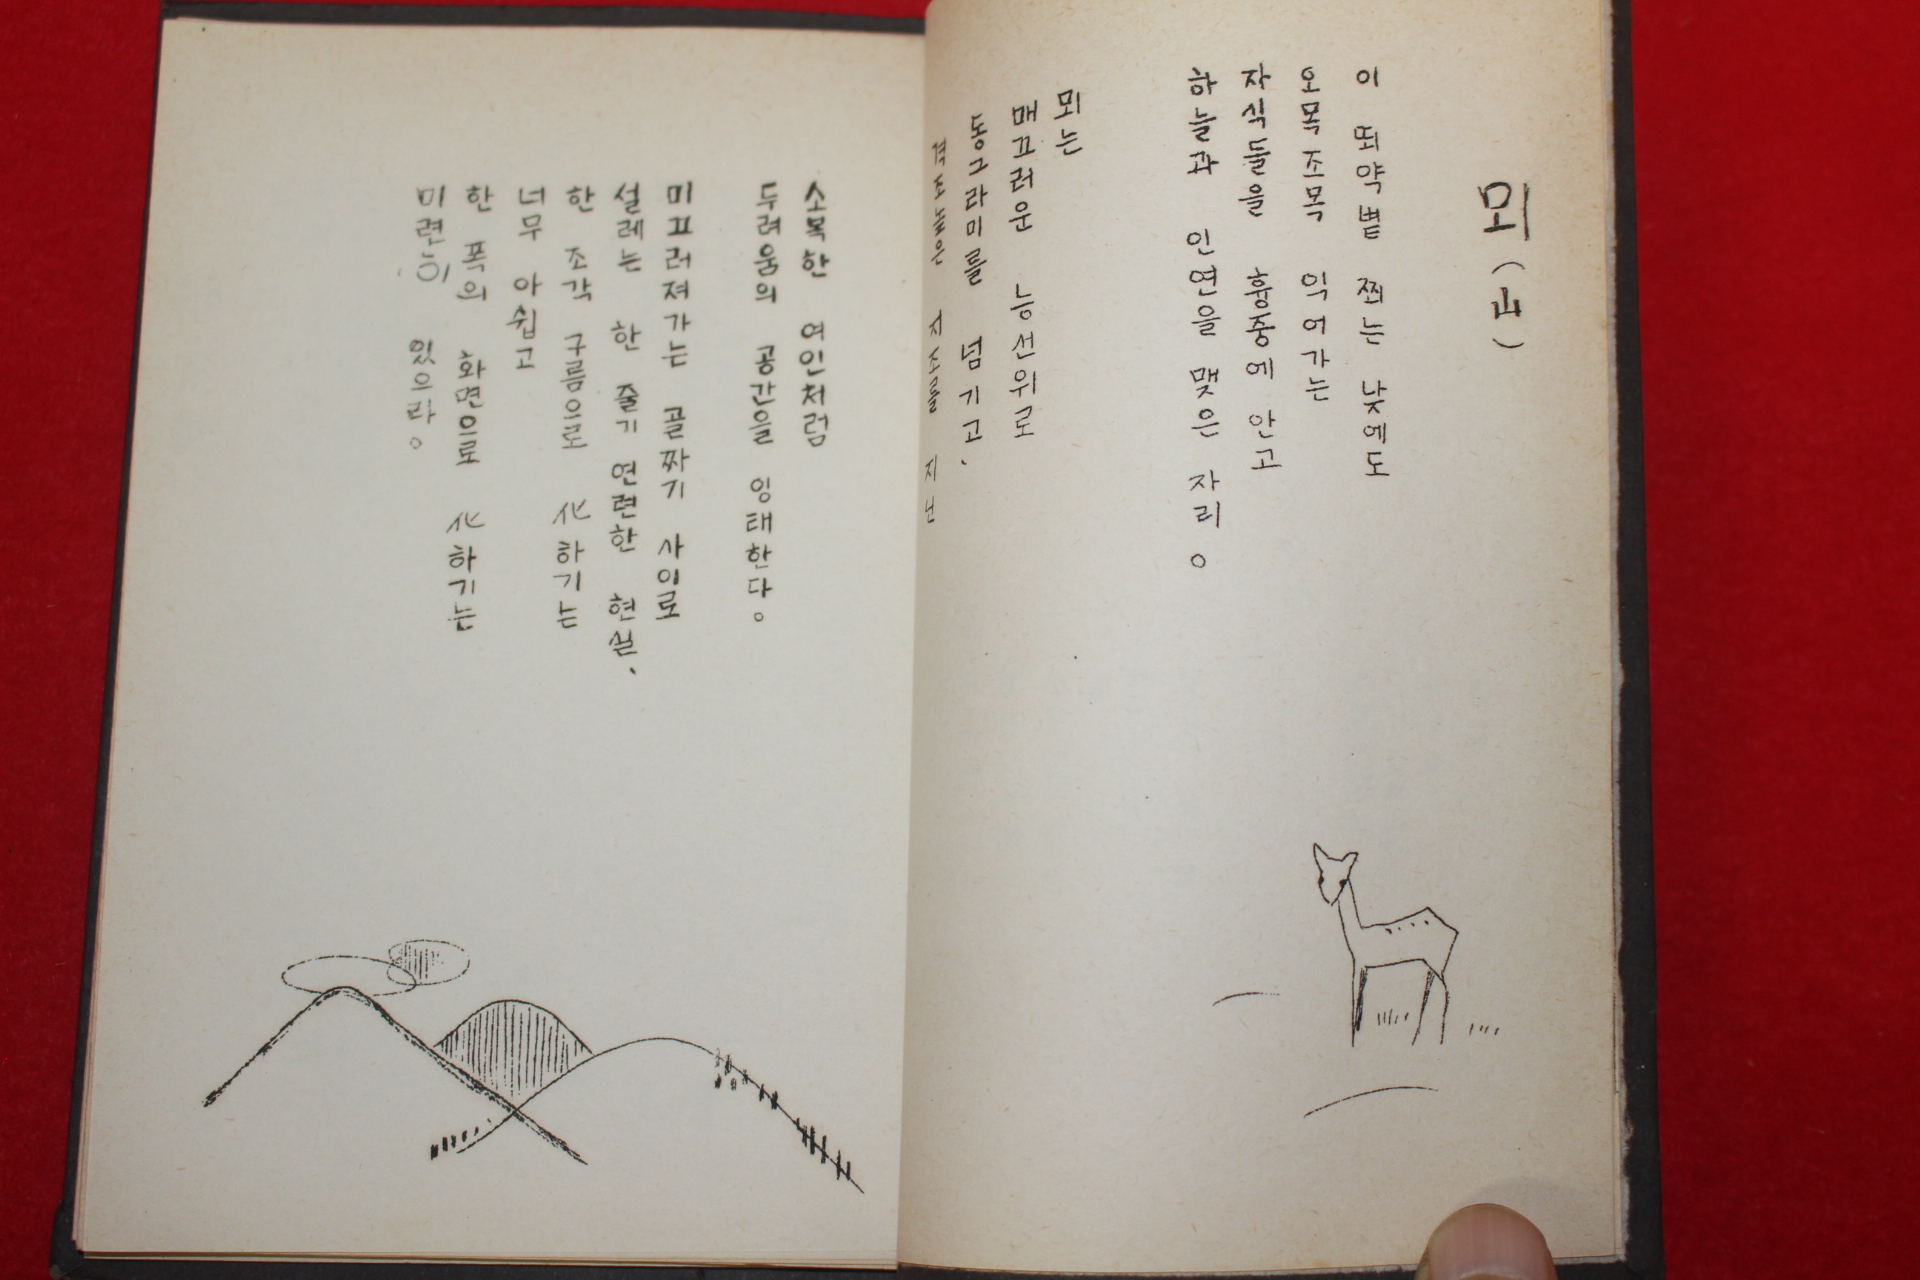 뫼(山)
이 뙤약볕 찌는 낮에도
오목조목 익어가는
자식들을 흉중에 안고
하늘과 인연을 맺은 자리。
뫼는
매끄러운 능선위로
동그라미를 넘기고、
격조높은 지조를 지닌
소복한 여인처럼
두려움의 공간을 잉태한다。
미끄러져가는 골짜기 사이로
설레는 한 줄기 연련한 현실、
한 조각 구름으로 化하기는
너무 아쉽고
한 폭의 화면으로 化하기는
미련이 있으라。